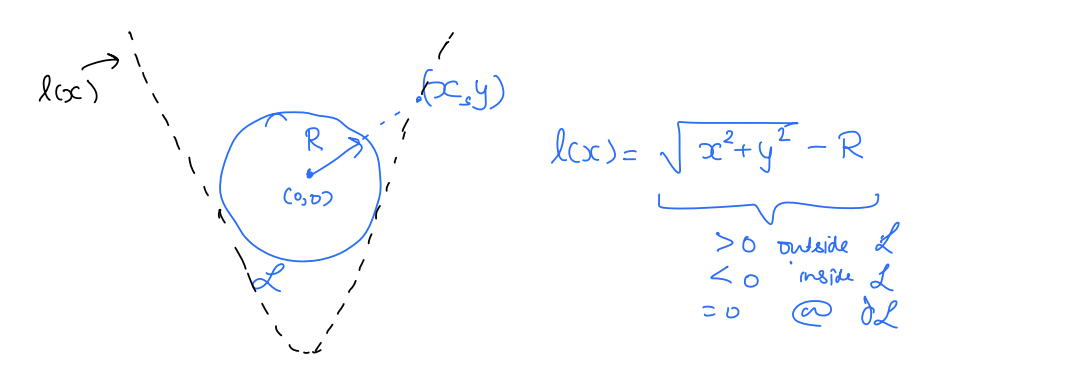 l(x)
(x,y)
R
(0,0)
ℒ
l(x) = √(x²+y²) - R
>0 outside ℒ
<0 inside ℒ
=0 @ ∂ℒ